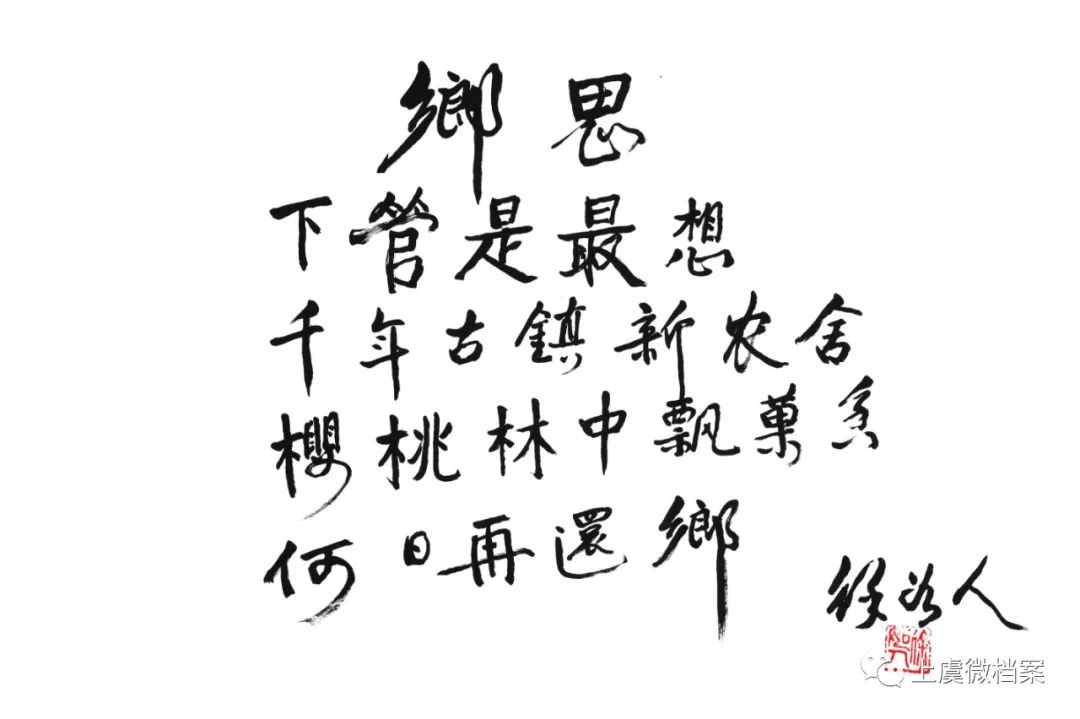 鄉思
下管是最想
千年古鎮新农舍
櫻桃林中飄菓香
何日再還鄉
徐如人
上虞微档案